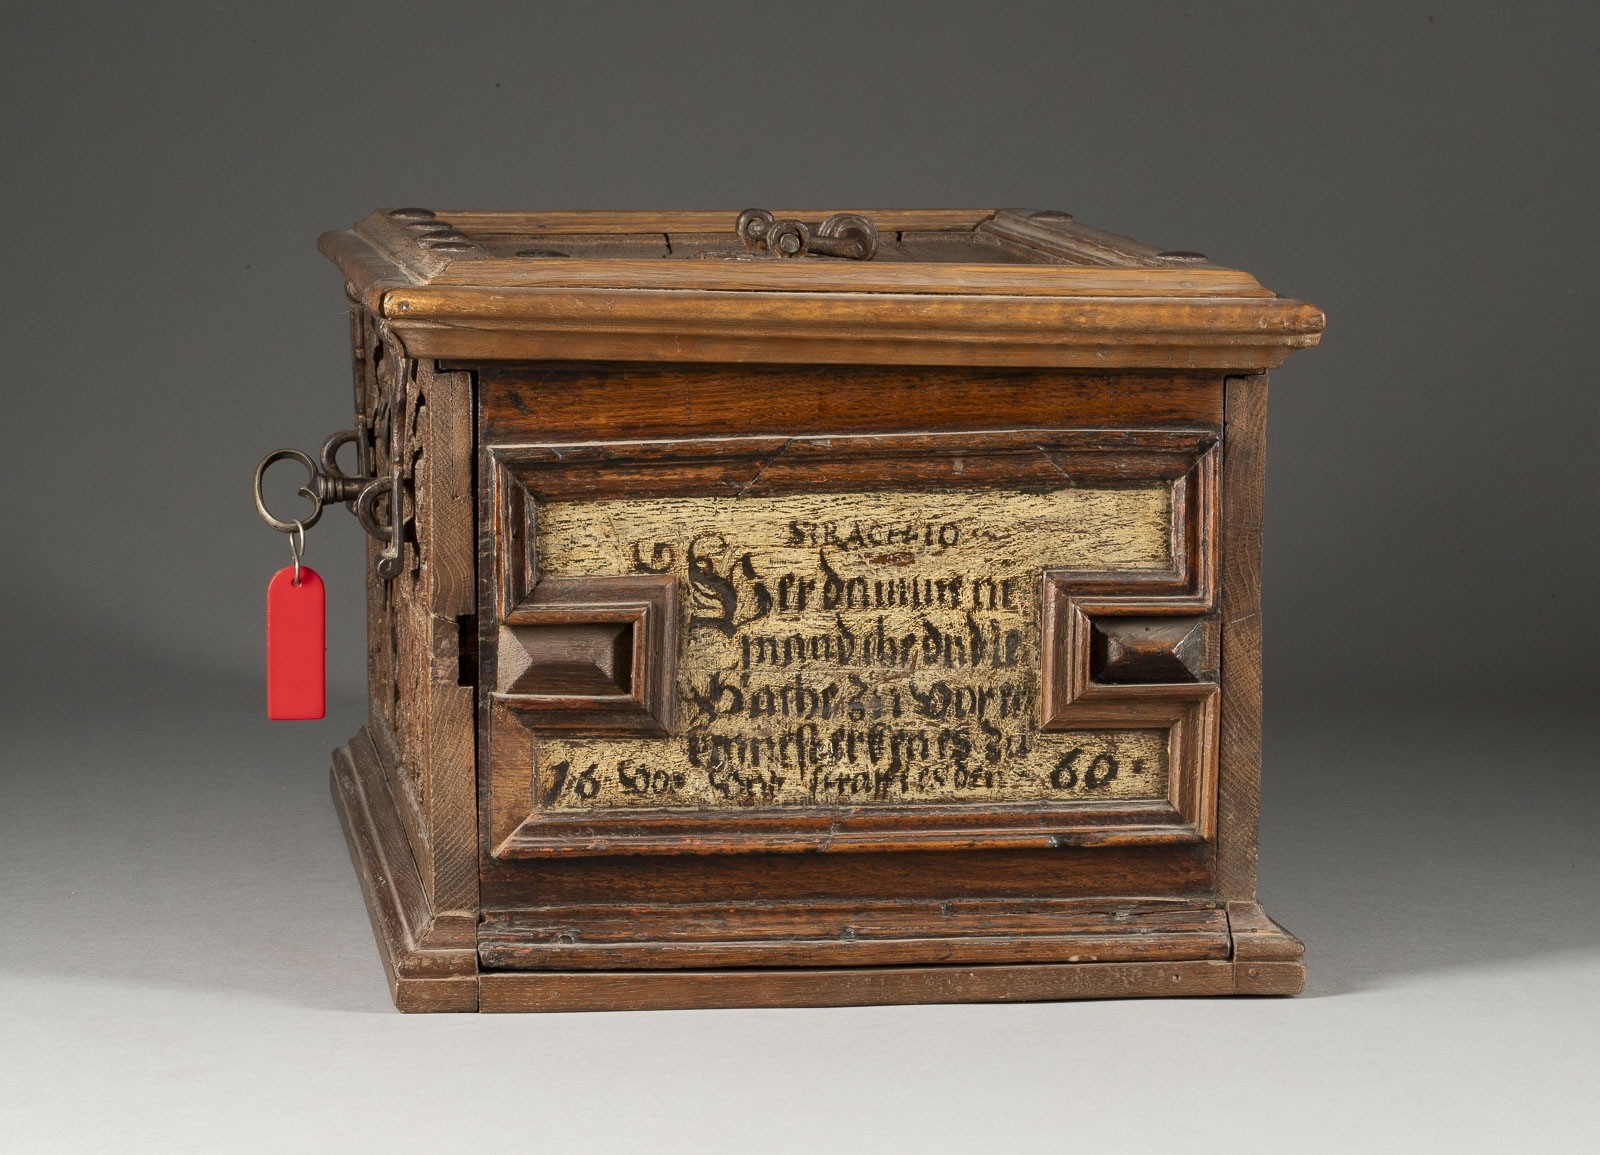 SIRACH·10
Verdamme nie
mand ehe du die
Sache zu vor er
kennest erkenes zu
16 vor straffes den 60